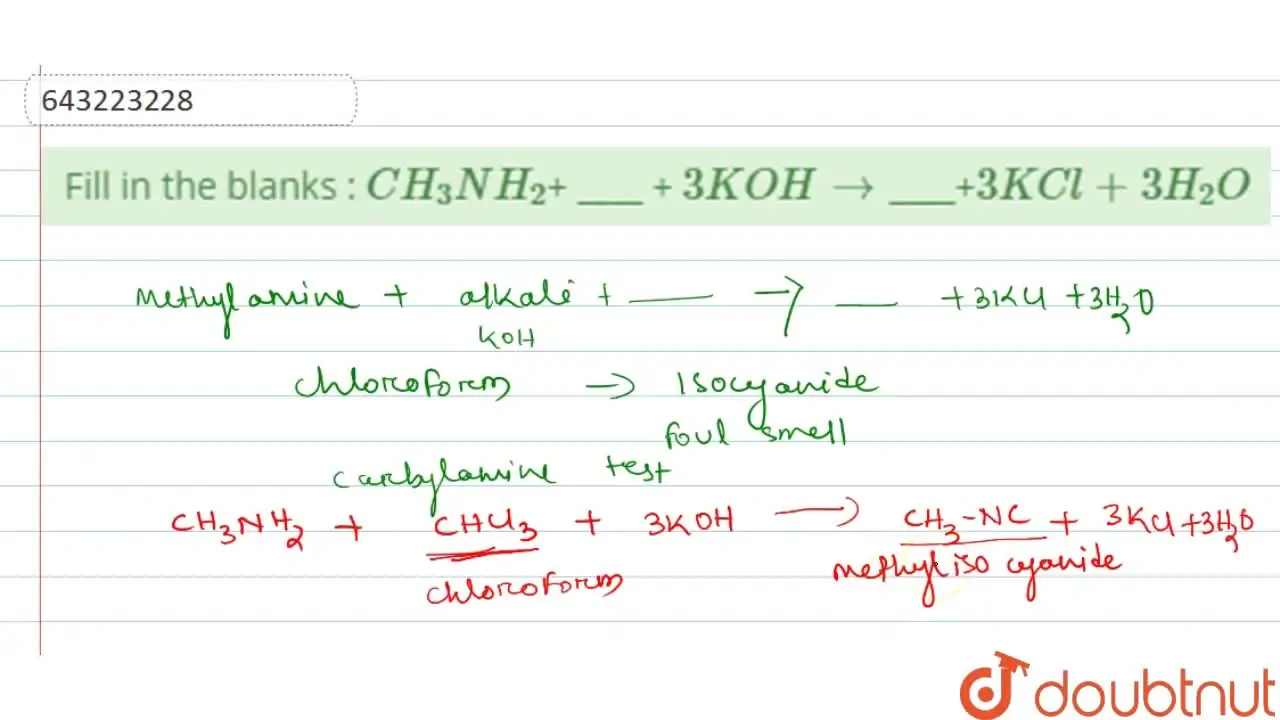 643223228
Fill in the blanks : CH₃NH₂+ ___ + 3KOH → ___+3KCl + 3H₂O
Methylamine + alkali + ___ → ___ + 3KCl + 3H₂O
KOH
Chloroform → Isocyanide
foul smell
carbylamine test
CH₃NH₂ + CHCl₃ + 3KOH → CH₃-NC + 3KCl + 3H₂O
Chloroform methyl iso cyanide
doubtnut